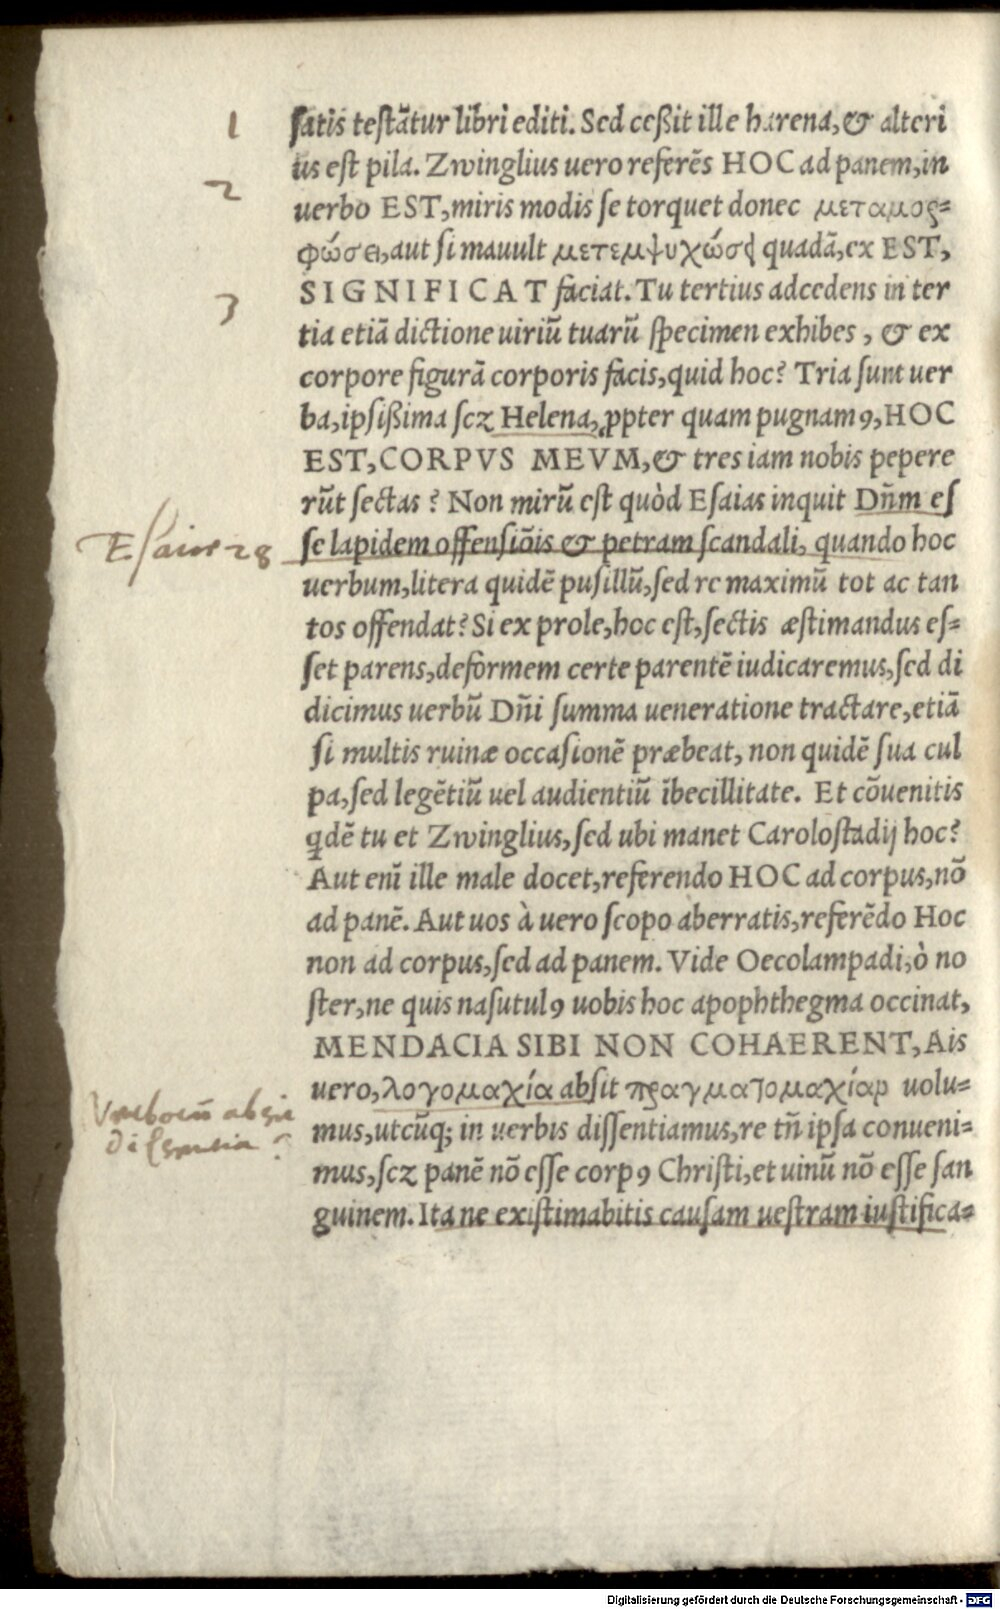 1
satis testātur libri editi. Sed ceßit ille harena, & alteri
us est pila. Zwinglius uero referēs HOC ad panem, in
2
uerbo EST, miris modis se torquet donec μεταμορ=
φώσει, aut si mauult μετεμψυχώσει quadā, ex EST,
3
SIGNIFICAT faciat. Tu tertius adcedens in ter
tia etiā dictione uiriū tuarū specimen exhibes, & ex
corpore figurā corporis facis, quid hoc? Tria sunt uer
ba, ipsißima scz Helena, ꝓpter quam pugnamꝰ, HOC
EST, CORPVS MEVM, & tres iam nobis pepere
rūt sectas? Non mirū est quòd Esaias inquit Dn̄m es
Esaiae 28
se lapidem offensiōis & petram scandali, quando hoc
uerbum, litera quidē pusillū, sed re maximū tot ac tan
tos offendat? Si ex prole, hoc est, sectis æstimandus es=
set parens, deformem certe parentē iudicaremus, sed di
dicimus uerbū Dn̄i summa ueneratione tractare, etiā
si multis ruinæ occasionē præbeat, non quidē sua cul
pa, sed legētiū uel audientiū ībecillitate. Et cōuenitis
q̄dē tu et Zwinglius, sed ubi manet Carolostadij hoc?
Aut enī ille male docet, referendo HOC ad corpus, nō
ad panē. Aut uos à uero scopo aberratis, referēdo Hoc
non ad corpus, sed ad panem. Vide Oecolampadi, ò no
ster, ne quis nasutulꝰ uobis hoc apophthegma occinat,
MENDACIA SIBI NON COHAERENT, Ais
uero, λογομαχία absit πραγματομαχίαν uolu=
Verborū absit
mus, utcūq; in uerbis dissentiamus, re tn̄ ipsa conueni=
mus, scz panē nō esse corpꝰ Christi, et uinū nō esse san
guinem. Ita ne existimabitis causam uestram iustifica=
Digitalisierung gefördert durch die Deutsche Forschungsgemeinschaft - DFG